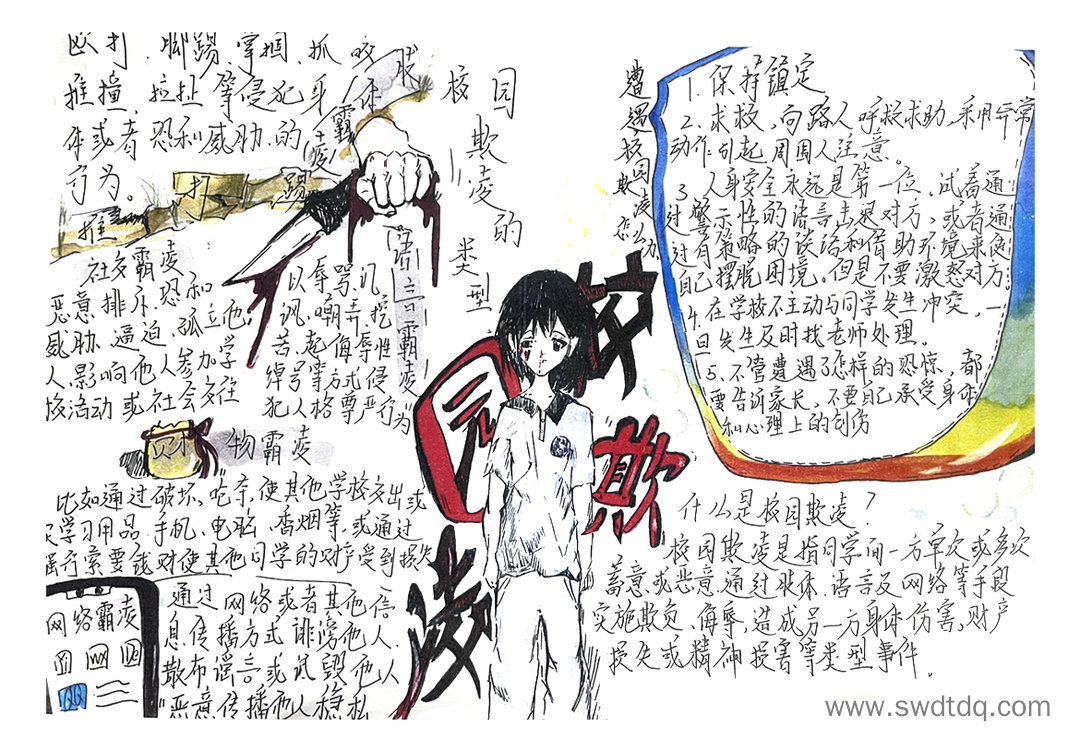 校园欺凌的类型
肢体霸凌
殴打、脚踢、掌掴、抓咬
推撞、拉扯等侵犯身
体或者恐和威胁的
行为。
推 打 踢
社交霸凌
恶意排斥、恐和
威胁、逼迫、孤立他
人、影响他人参加学
校活动或社会交往
语言霸凌
以辱骂、讥
讽、嘲弄、挖
苦、起侮辱性
绰号等方式侵
犯人格尊严行为
财物霸凌
比如通过破坏、
使其他学校交出或
学习用品、手机、电脑、香烟等,或通过
索要钱财使其他同学的财产受到损失
网络霸凌
QQ
通过网络或者其他信
息传播方式诽谤他人、
散布谣言或诋毁他人
恶意传播他人隐私
校园欺凌
遭遇校园欺凌怎么办
1.保持镇定
2.求救,向路人呼救求助,采用异常
动作引起周围人注意。
3.人身安全永远是第一位,试着通
过警示性的语言击退对方,或者通
过有策略的谈话和借助环境来使
自己摆脱困境,但是不要激怒对方
4.在学校不主动与同学发生冲突,一
旦发生及时找老师处理。
5、不管遭遇了怎样的恐惊,都
要告诉家长,不要自己承受身体
和心理上的创伤
什么是校园欺凌?
校园欺凌是指同学间一方单次或多次
蓄意或恶意通过肢体、语言及网络等手段
实施欺负、侮辱,造成另一方身体伤害,财产
损失或精神损害等类型事件.
www.swdtdq.com